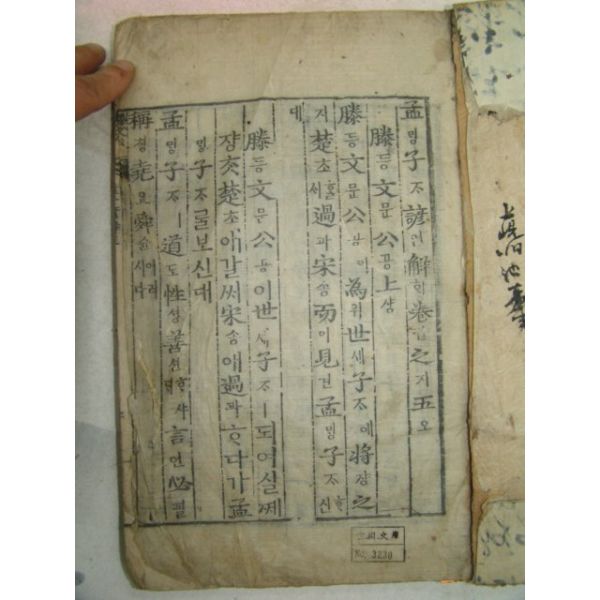 孟밍子ᄌᆞ諺언解ᄒᆡ卷권之지五오
滕등文문公공上샹
滕등文문公공이為위世셰子ᄌᆞ에將쟝之
지楚초ᄒᆞᆯ서過과宋송而이見견孟밍子ᄌᆞᄒᆞ신
대
滕등文문公공이世셰子ᄌᆞㅣ도여실쩨
쟝ᄎᆞᆺ楚초애갈ᄊᆡ宋송애過과ᄒᆞ다가孟
밍子ᄌᆞᄅᆞᆯ보신대
孟밍子ᄌᆞㅣ道도性셩善션ᄒᆞ샤ᄃᆡ言언必필
稱칭堯요舜슌이러시다
No. 3230